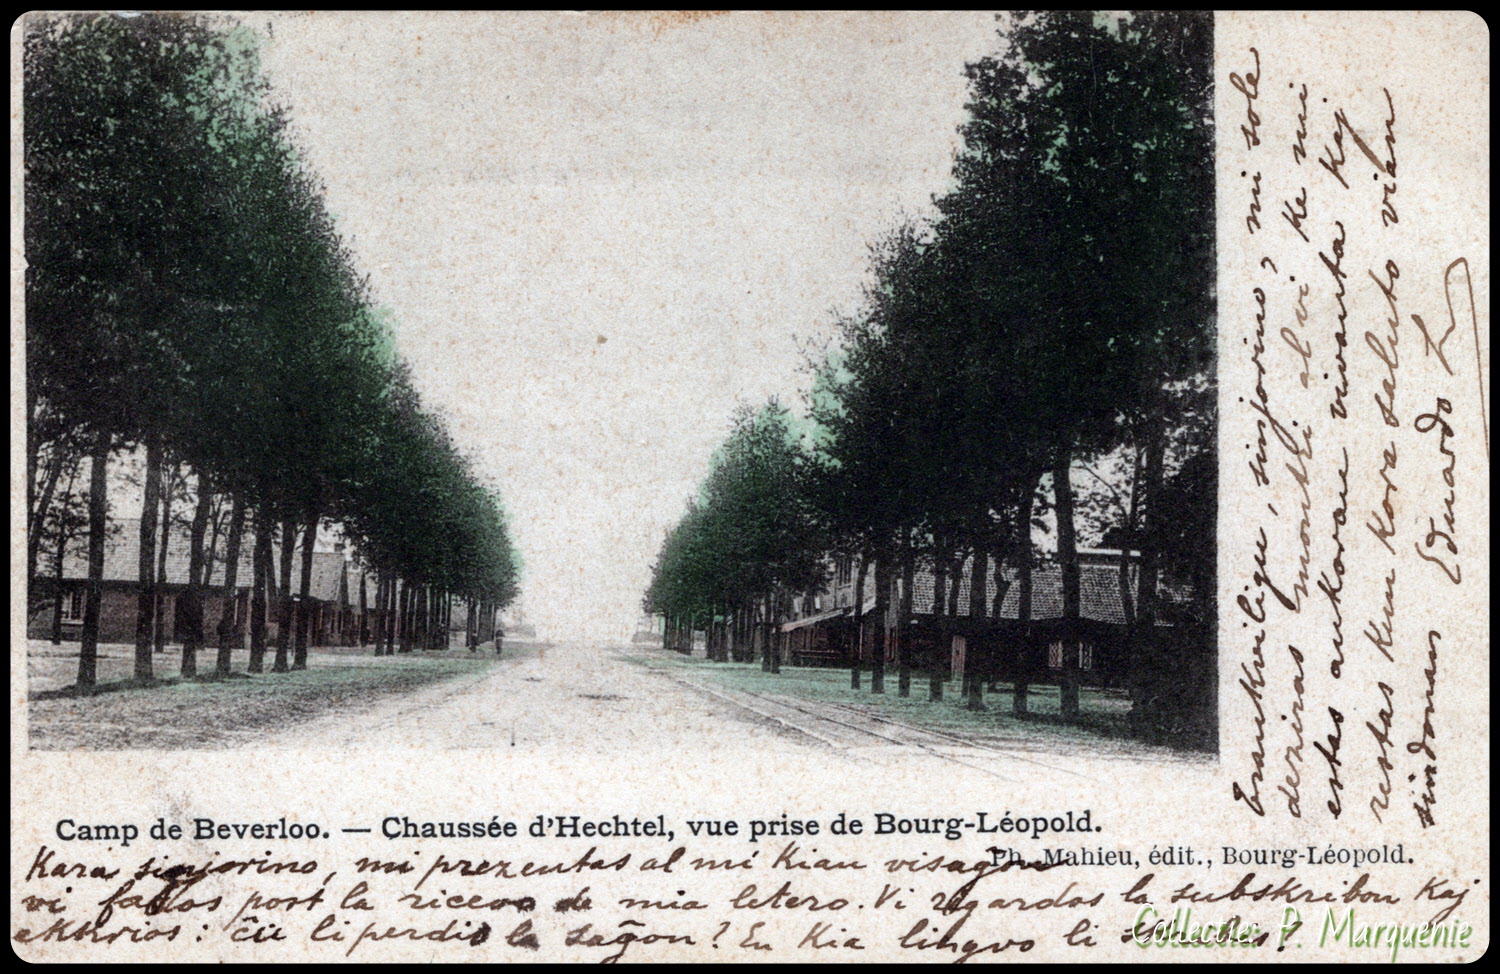 Camp de Beverloo. — Chaussée d'Hechtel, vue prise de Bourg-Léopold.
Ph. Mahieu, édit., Bourg-Léopold.
Kara sinjorino, mi prezentas al mi kian visagon
vi faros post la ricevo de mia letero. Vi rigardos la subskribon kaj
ekkrios: ĉu li perdis la saĝon? En kia lingvo li
Trankviligu, sinjorino, mi sole
deziras montri al vi ke mi
estas ankoraŭ vivanta kaj
restas kun kora saluto vian
sindonan Eduardo L
Collectie: P. Marquenie